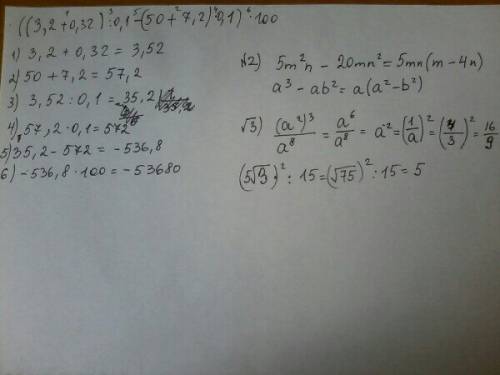 ((3,2+0,32):0,1-(50+7,2)·0,1)·100
1) 3,2+0,32=3,52
2) 50+7,2=57,2
3) 3,52:0,1=35,2
4) 57,2·0,1=572
5) 35,2-572=-536,8
6) -536,8·100=-53680
№2) 5m²n - 20mn²=5mn(m-4n)
a³-ab²=a(a²-b²)
√3) (a²)³/a⁸ = a⁶/a⁸ = a⁻²=(1/a)²=(4/3)²=16/9
(5√3)²:15=(√75)²:15=5